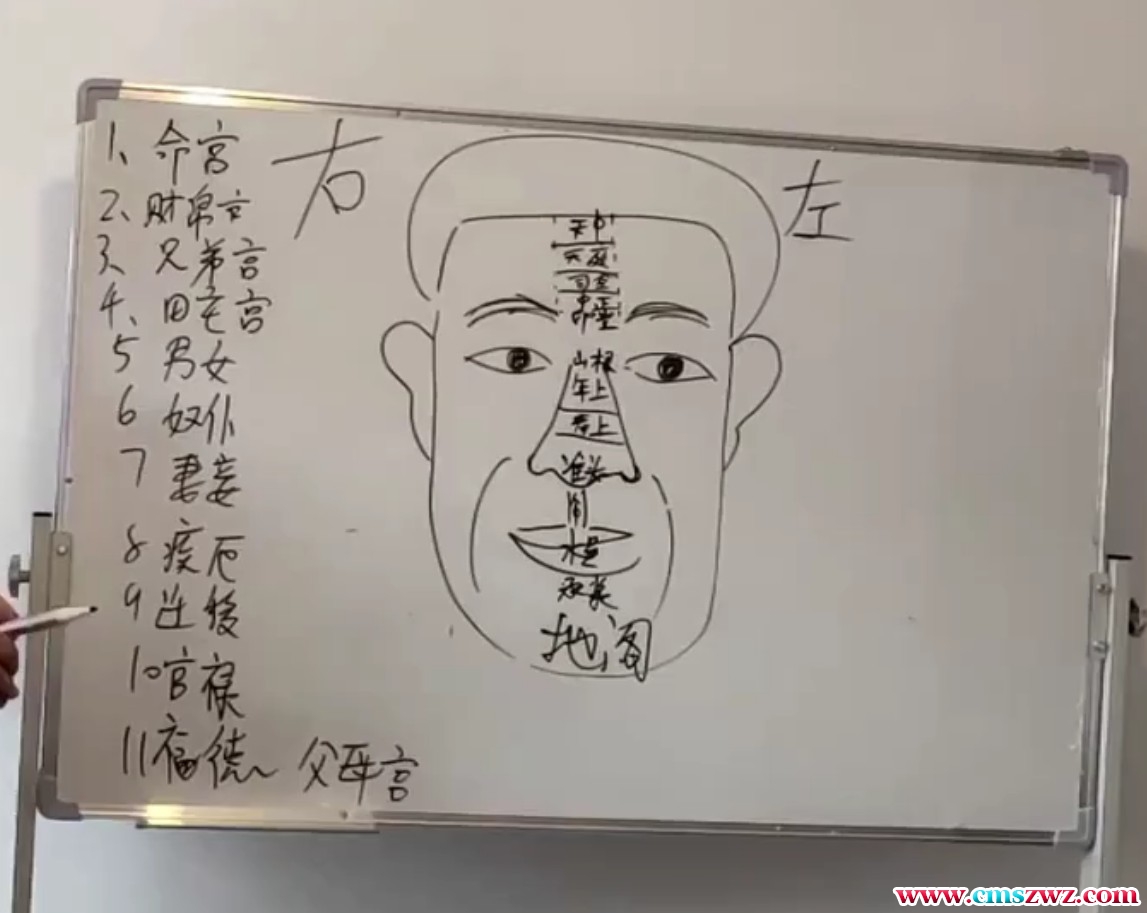 1、命宫
2、财帛宫
3、兄弟宫
4、田宅宫
5 男女
6 奴仆
7 妻妾
8 疾厄
9 迁移
10 官禄
11 福德 父母宫
右
左
天中
天庭
司空
中正
印堂
山根
年上
寿上
准头
人中
水星
承浆
地阁
www.cmszwz.com